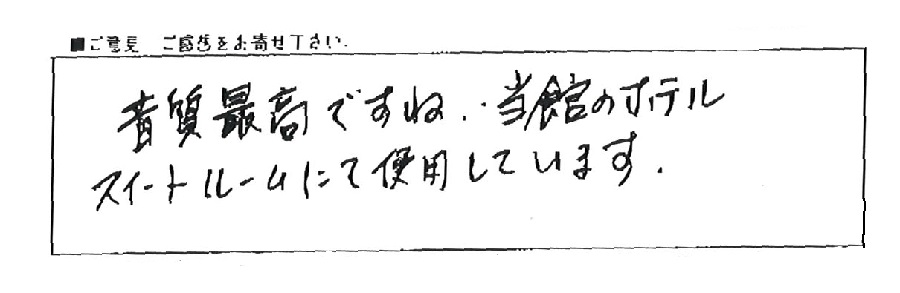 ■ご意見 ご感想をお寄せ下さい.
音質最高ですね..当館のホテル
スイートルームにて使用しています.